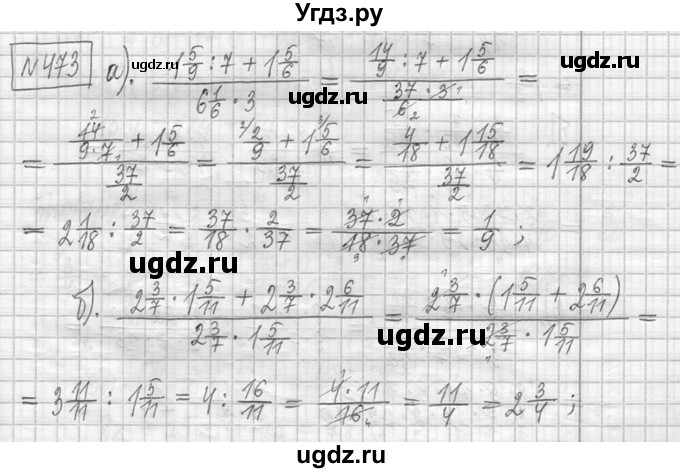 Угдз.ру
№473 а). (1 5/9 : 7 + 1 5/6) / (6 1/6 · 3) = (14/9 : 7 + 1 5/6) / (37 · 3 / 6) =
= (14/(9·7) + 1 5/6) / (37/2) = (2/9 + 1 5/6) / (37/2) = (4/18 + 1 15/18) / (37/2) = 1 19/18 : 37/2 =
= 2 1/18 : 37/2 = 37/18 · 2/37 = (37 · 2)/(18 · 37) = 1/9 ;
б). (2 3/7 · 1 5/11 + 2 3/7 · 2 6/11) / (2 3/7 · 1 5/11) = (2 3/7 · (1 5/11 + 2 6/11)) / (2 3/7 · 1 5/11) =
= 3 11/11 : 1 5/11 = 4 : 16/11 = (4 · 11)/16 = 11/4 = 2 3/4 ;
ugdz.ru
ugdz.ru
ugdz.ru
ugdz.ru
ugdz.ru
ugdz.ru
ugdz.ru
ugdz.ru
ugdz.ru
ugdz.ru
ugdz.ru
ugdz.ru